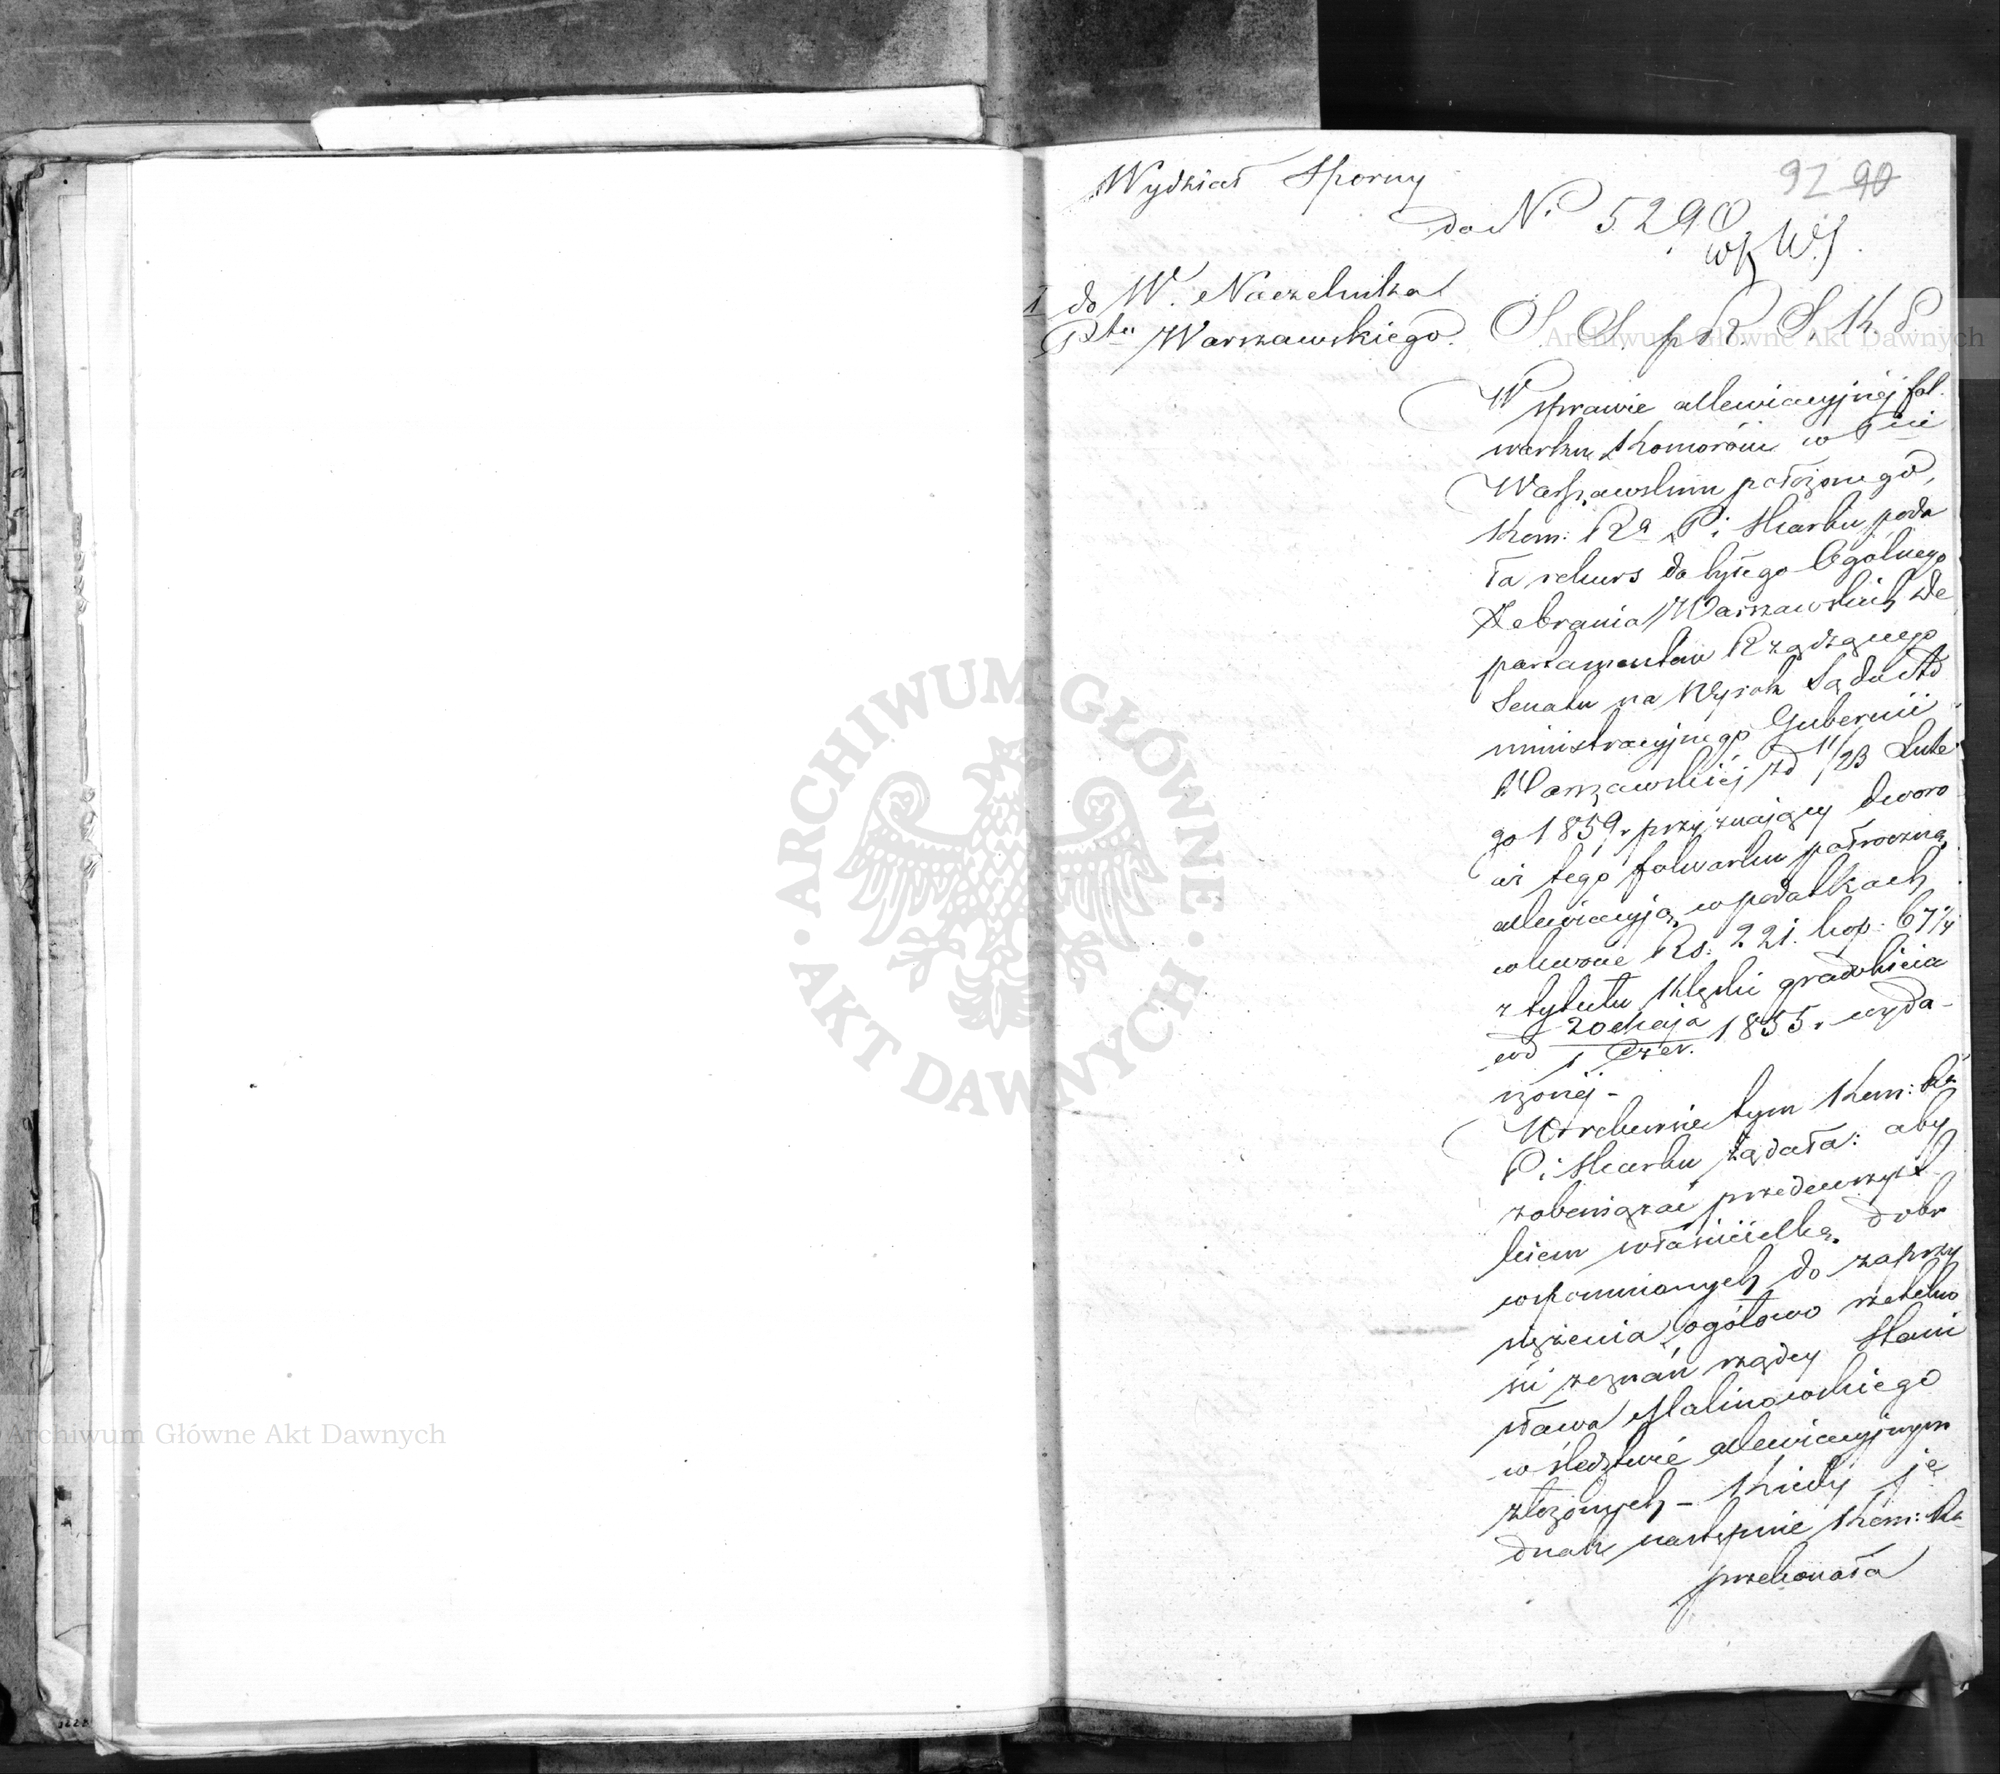 92 90
Wydział Sporny
do N. 5290
I do W. Naczelnika
Ptu Warszawskiego.
S. S. p. R. S. K. P.
W sprawie allewiacyjnéj fol
warku Komorów w Pcie
Warszawskim położonego,
Kom: Ra P. i Skarbu poda
ła rekurs do byłego Ogólnego
Zebrania Warszawskich De
partamentów Rządzącego
Senatu na Wyrok Sądu Ad
ministracyjnego Gubernii
Warszawskiéj zd 11/23 Lute
go 1859 r przyznający dworo
wi tego folwarku półroczną
allewiacyją w podatkach
w kwocie Rs. 221. kop: 67 1/4
z tytułu klęski gradobicia
wd 20 Maja / 1 Czer. 1855 r wyda-
rzonéj -
W rekursie tym Kom: Rz
P. i Skarbu żądała: aby
zobowiązać przedewszyst
kiem właścicielkę dobr
wspomnianych do zaprzy
siężenia ogółowo rzetelno
ści zeznań rządcy Stani
sława Malinowskiego
w śledztwie allewiacyjnym
złożonych - Kiedy je
dnak następnie Kom: Rz
przekonała
Archiwum Główne Akt Dawnych
ARCHIWUM GŁÓWNE
AKT DAWNYCH
Archiwum Główne Akt Dawnych